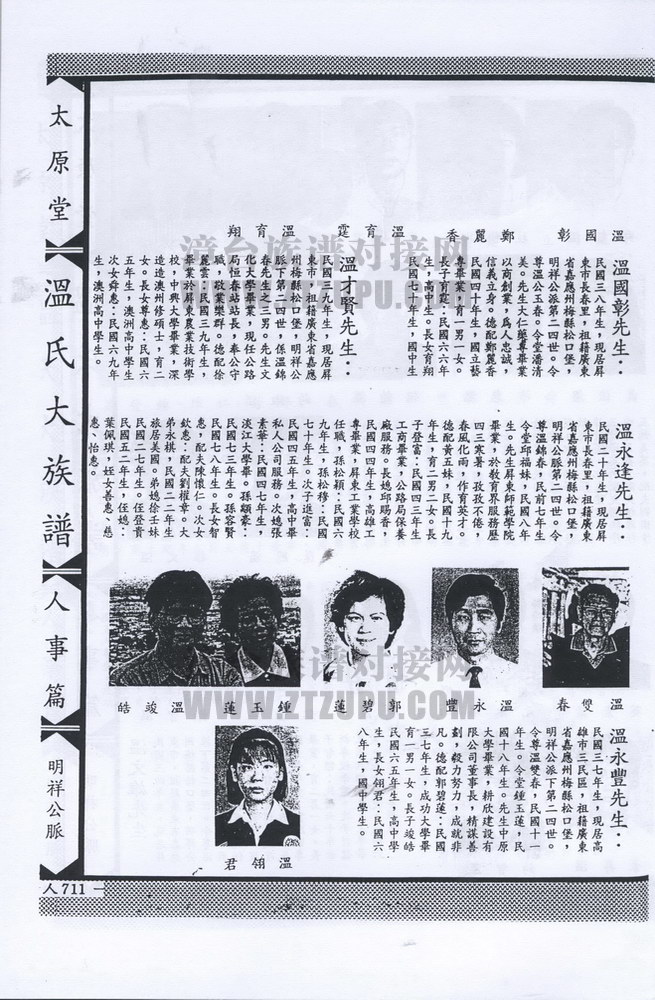 太原堂
溫氏大族譜
人事篇
明祥公脈
人711
溫國彰
鄭麗香
溫育霆
溫育翔
溫國彰先生：
民國三八年生，現居屏
東市長春里，祖籍廣東
省嘉應州梅縣松口堡，
明祥公派第二四世。令
尊溫公玉春。令堂潘清
美。先生大仁藥專畢業
，以商創業，為人忠誠，
信義立身。德配鄭麗香
民國四十年生，國立藝
專畢業，育一男一女。
長子育霆：民國六六年
生，高中生。長女育翔
民國七十年生，國中生
溫才賢先生：
民國三九年生，現居屏
東市，祖籍廣東省嘉應
州梅縣松口堡，明祥公
脈下第二四世，係溫錦
春先生之三男。先生文
化大學畢業，現任公路
局恒春站站長，奉公守
職，敬業樂群。德配徐
麗雲：民國三九年生，
畢業於屏東農業技術學
校，中興大學畢業，深
造造澳州修碩士，育二
女。長女尊惠：民國六
五年生，澳洲高中學生
次女舜惠：民國六九年
生，澳洲高中學生。
溫永逢先生：
民國二十年生，現居屏
東市長春里，祖籍廣東
省嘉應州梅縣松口堡，
明祥公派第二四世。令
尊溫錦春，民前七年生
令堂邱福妹，民國八年
生。先生屏東師範學院
畢業，於教育界服務歷
四三寒暑，孜孜不倦，
春風化雨，作育英才。
德配黃五妹，民國十九
年生，育二男二女。長
子登富：民國四三年生
工商畢業，公路局保養
廠服務。長媳邱賜香，
民國四四年生，高雄工
專畢業，屏東工業學校
任職，孫松穎：民國六
九年生，孫松修：民國
七十年生。次子進富：
民國四五年生，高中畢
私人公司服務。次媳張
素華：民國四七年生，
淡江大學畢。孫顯豪：
民國七三年生。孫容賢
民國七八年生。長女智
惠，配夫陳懷仁。次女
欽惠：配夫劉權章。大
弟永棋，民國二二年生
旅居美國。弟媳徐壬妹
民國二七年生。侄登貴
民國五二年生，侄媳：
葉佩琪，姪女善惠、慈
惠、怡惠。
溫雙春
溫永豐
郭碧蓮
鍾玉蓮
溫竣皓
溫翎君
溫永豐先生：
民國三七年生，現居高
雄市三民區，祖籍廣東
省嘉應州梅縣松口堡，
明祥公派下第二四世。
令尊溫雙春，民國十一
年生。令堂鍾玉蓮，民
國十八年生。先生中原
大學畢業，耕欣建設有
限公司董事長，精謀善
劃，毅力努力，成就非
凡。德配郭碧蓮：民國
三七年生，成功大學畢
育一男一女。長子竣皓
民國六五年生，高中學
生，長女翎君：民國六
八年生，國中學生。
漳台族谱对接网
WWW.ZTZUPU.COM
漳台族谱对接网
WWW.ZTZUPU.COM